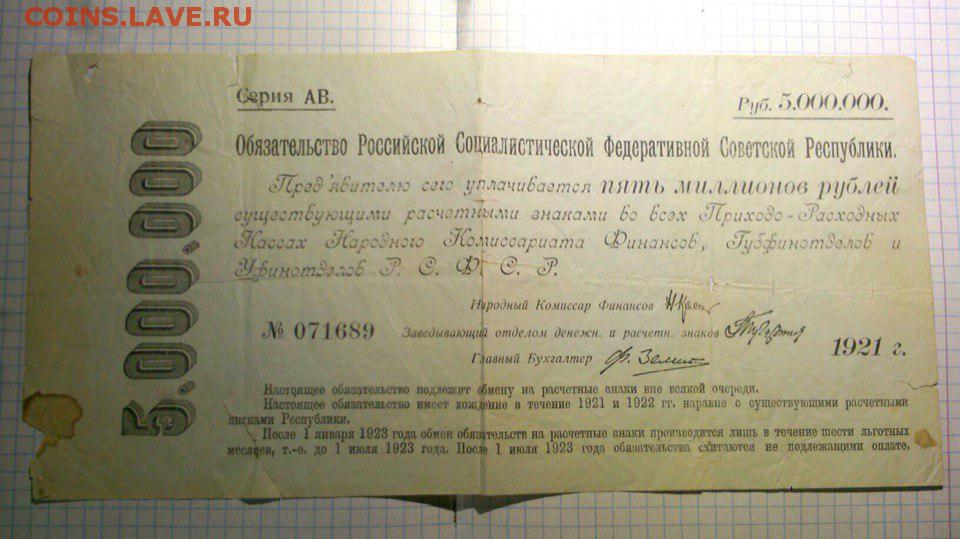 COINS.LAVE.RU
Серия АВ.
Руб. 5.000.000.
5.000.000
Обязательство Российской Социалистической Федеративной Советской Республики.
Пред'явителю сего уплачивается пять миллионов рублей
существующими расчетными знаками во всех Приходо-Расходных
Кассах Народного Комиссариата Финансов, Губфинотделов и
Уфинотделов Р. С. Ф. С. Р.
Народный Комиссар Финансов
№ 071689 Заведывающий отделом денежн. и расчетн. знаков
1921 г.
Главный Бухгалтер
Настоящее обязательство подлежит обмену на расчетные знаки вне всякой очереди.
Настоящее обязательство имеет хождение в течение 1921 и 1922 гг. наравне с существующими расчетными
знаками Республики.
После 1 января 1923 года обмен обязательств на расчетные знаки производится лишь в течение шести льготных
месяцев, т.-е. до 1 июля 1923 года. После 1 июля 1923 года обязательства считаются не подлежащими оплате.